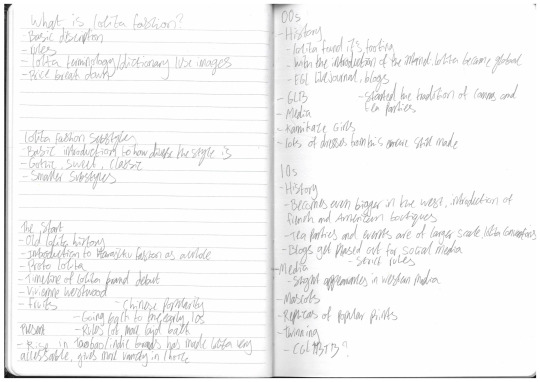 What is lolita fashion?
- Basic description
- rules
- lolita terminology/dictionary use images
- Price break down
Lolita fashion substyles
- Basic introduction to how diverse the style is
- Gothic, sweet, classic
- Smaller substyles
The start
- Old lolita history
- Introduction to Harajuku fashion as a whole
- Proto lolita
- Timeline of lolita brand debut
- Vivienne Westwood
- Fruits
- Chinese popularity
- Going back to pre/early, 10s
Present
- Rules lot, more laid back
- Rise in Taobao/indie brands has made lolita very
accessable, gives more variety in
00s
- History
- Lolita found its footing
- With the introduction of the internet, lolita became global
- EGL Livejournal, blogs
- GLB
- started the tradition of comms and
tea parties
- Media
- Kamikaze Girls
- lots of dresses from this era are still made
10s
- History
- Becomes even bigger in the west, introduction of
french and American boutiques
- Tea parties and events are of larger scale, lolita conventions
- Blogs get phased out for social media
- Senet rules
- Media
- appearances in western media
- Mascots
- Replicas of popular prints
- Twinning
- CGL